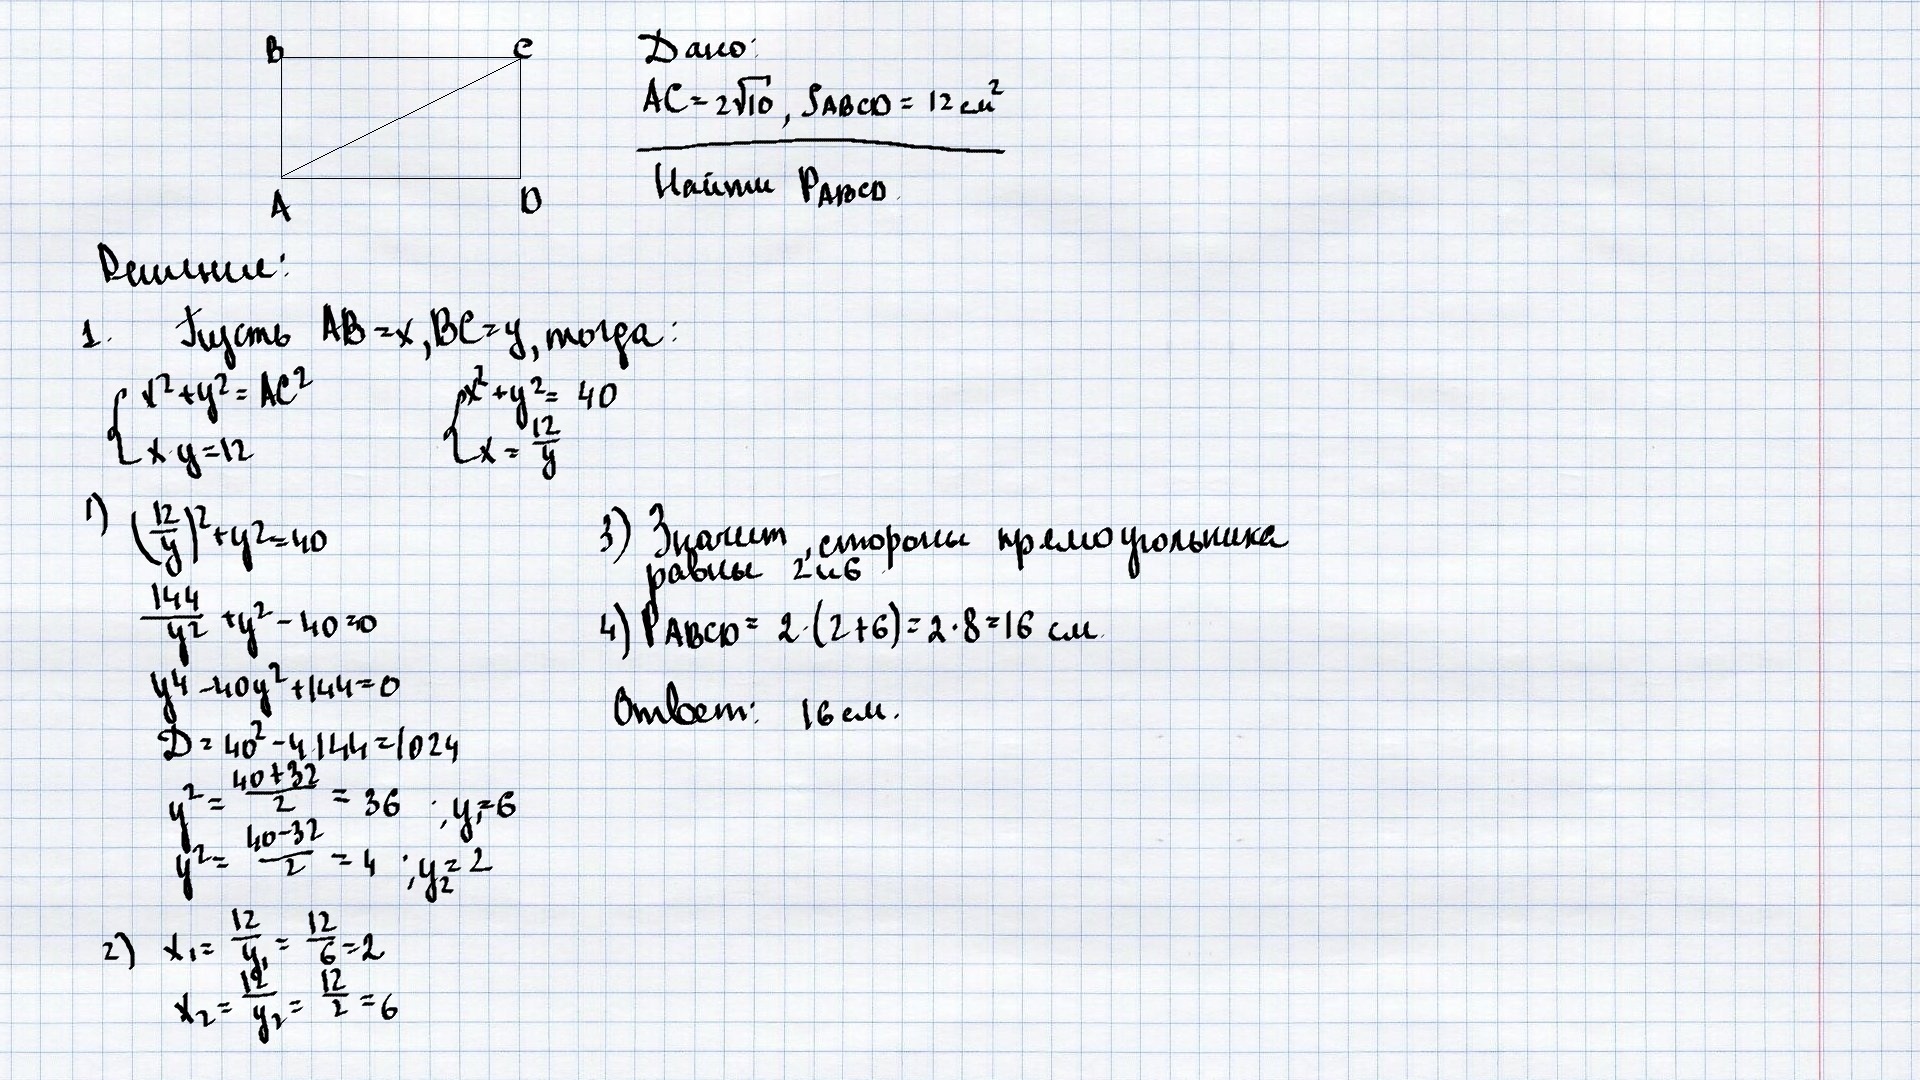 B C
A D
Дано:
AC=2√10, SABCD = 12 см²
Найти PABCD.
Решение:
1. Пусть AB=x, BC=y, тогда:
{ x²+y²=AC²
x·y=12
{ x²+y²= 40
x = 12/y
1) (12/y)²+y²=40
144/y² +y² - 40=0
y⁴-40y²+144=0
D=40²-4·144=1024
y²= (40+32)/2 = 36 ; y₁=6
y²= (40-32)/2 = 4 ; y₂=2
2) x₁= 12/y₁ = 12/6 =2
x₂= 12/y₂ = 12/2 =6
3) Значит, стороны прямоугольника
равны 2 и 6
4) PABCD= 2·(2+6)=2·8=16 см.
Ответ: 16 см.